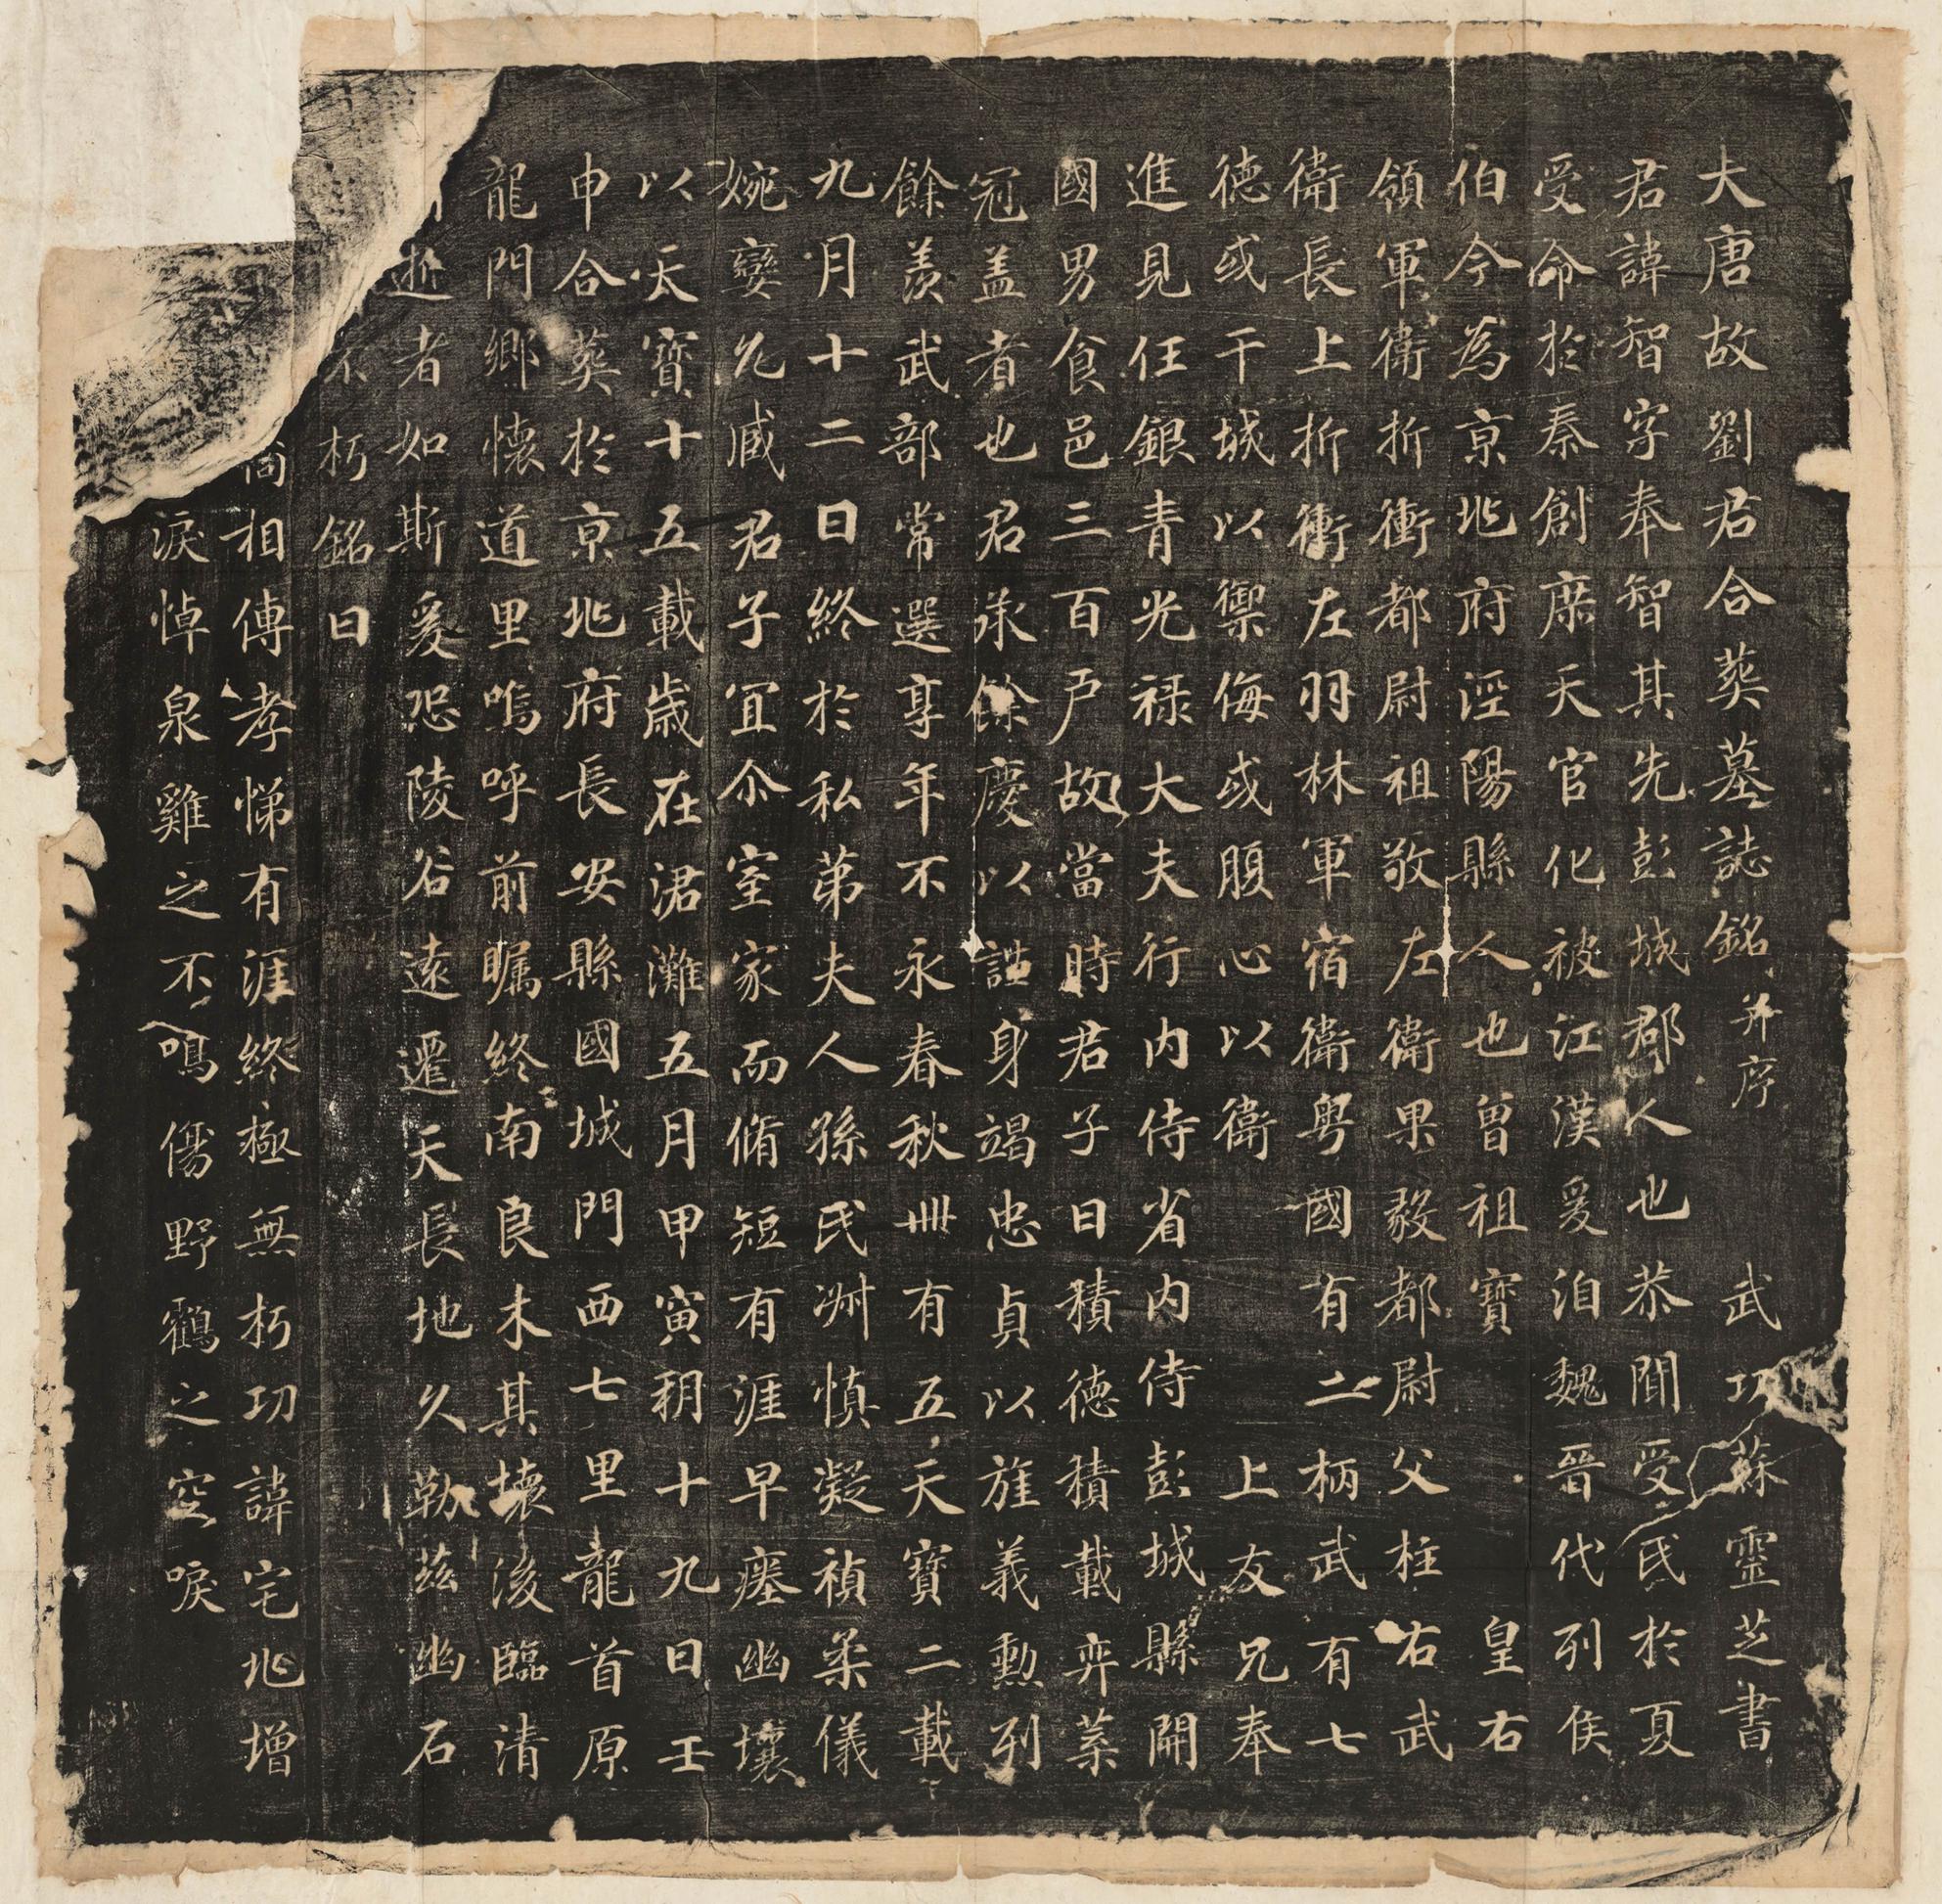 大唐故劉君合葬墓誌銘并序武功蘇靈芝書
君諱智字奉智其先彭城郡人也恭聞受氏於夏
受命於秦創庶天官化被江漢爰洎魏晉代列侯
伯今為京兆府涇陽縣人也曾祖寶皇右
領軍衛折衝都尉祖敬左衛果毅都尉父柱右武
衛長上折衝左羽林軍宿衛粤國有二柄武有七
德或干城以禦侮或腹心以衛上友兄奉
進見任銀青光禄大夫行内侍省内侍彭城縣開
國男食邑三百戸故當時君子曰積德積載弈葉
冠盖者也君承餘慶以謹身竭忠貞以旌義勲列
餘羡武部常選享年不永春秋卌有五天寶二載
九月十二日終於私苐夫人孫氏淋慎凝禎柔儀
婉孌允臧君子冝尒室家而脩短有涯早瘞幽壤
以天寶十五載歲在涒灘五月甲寅朔十九日壬
申合葬於京兆府長安縣國城門西七里龍首原
龍門鄉懷道里嗚呼前矚終南良木其壞後臨清
逝者如斯爰恐陵谷遠遷天長地久勒茲幽石
不朽銘曰
相傳孝悌有涯終極無朽功諱宅兆增
淚悼泉雞之不鳴傷野鶴之空唳